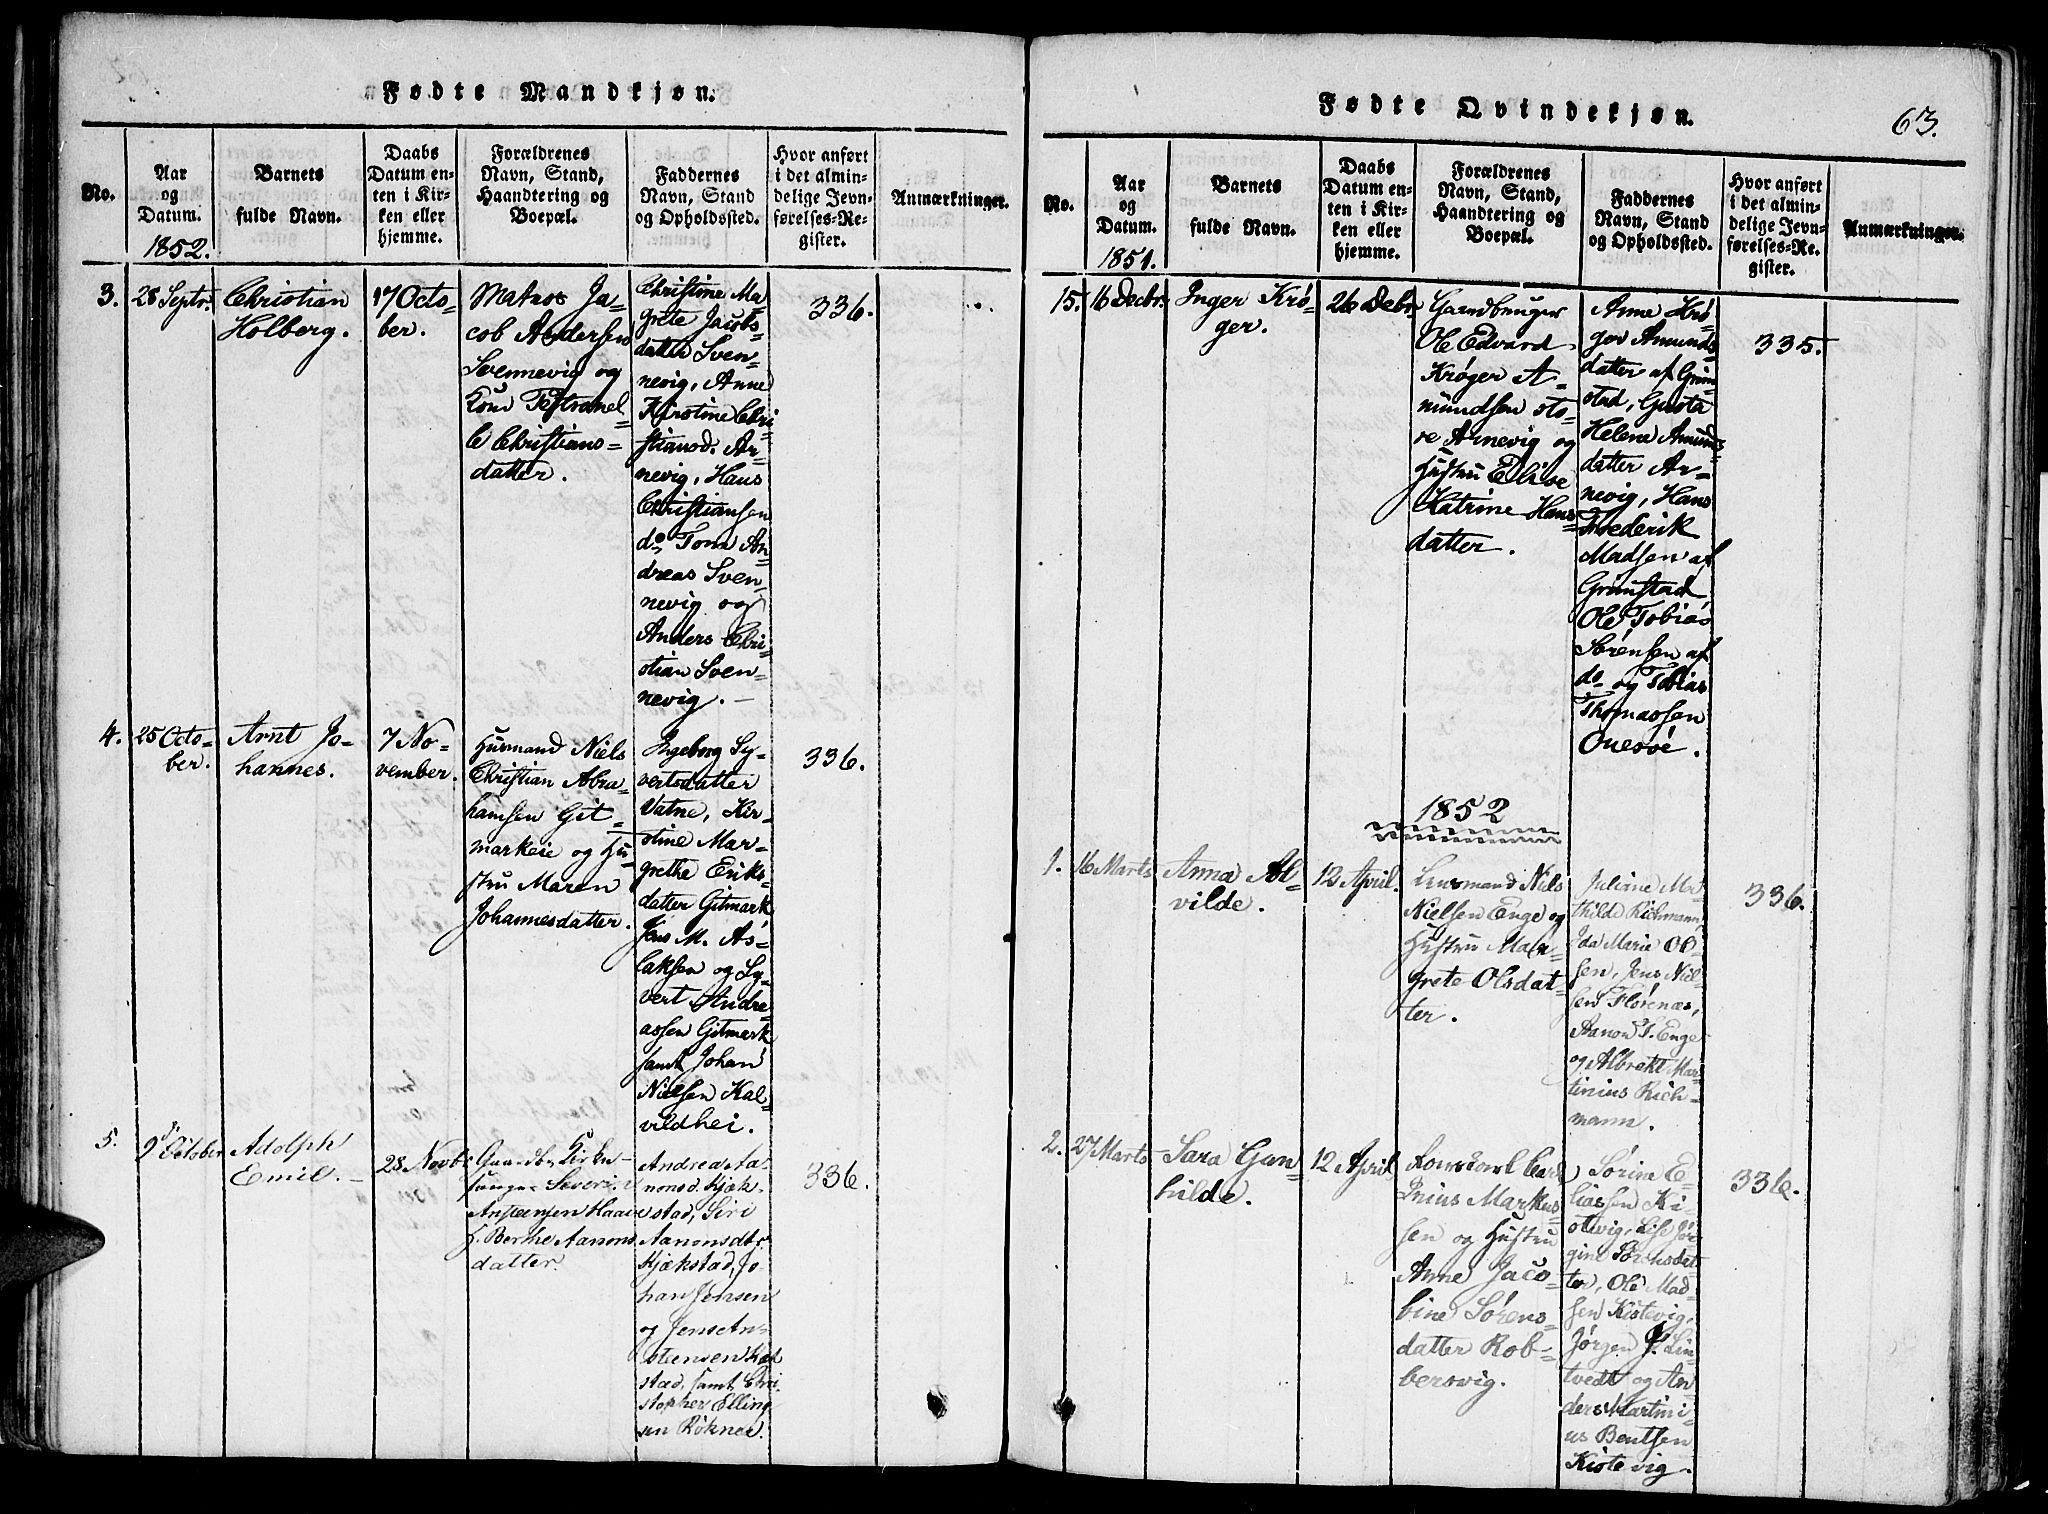 Fødte Mandkjøn.
No.
Aar
og
Datum.
1852.
Barnets
fulde Navn.
Daabs
Datum en-
ten i Kir-
ken eller
hjemme.
Forældrenes
Navn, Stand,
Haandtering og
Boepæl.
Faddernes
Navn, Stand
og Opholdssted.
Hvor anført
i det almin-
delige Jevn-
førelses-Re-
gister.
Anmærkninger.
3.
28 Septr.
Christian
Holberg.
17 Octo-
ber.
Matros Ja-
cob Andersen
Svennevig og
Kone
Christians-
datter.
Christine Ma-
grete Jacobs-
datter Sven-
nevig, Anne
Kirstine Chri-
stiansd. Ar-
nevig, Hans
Christiansen
do, Tom An-
dreas Sven-
nevig og
Anders Chri-
stian Sven-
nevig.
336.
4.
25 Octo-
ber.
Arnt Jo-
hannes.
7 No-
vember.
Husmand Niels
Christian Abra-
hamsen Git-
markeie og Hu-
stru Maren
Johannesdatter.
Ingeborg Sy-
vertsdatter
Vatne, Kir-
stine Mar-
grethe Eriks-
datter Gitmark
Jens M. As-
laksen og Sy-
vert Andre-
assen Gitmark
samt Johan
Nielsen Kal-
vildhei.
336.
5.
9 October
Adolph
Emil.
28 Novbr
Gaardbr. Kirke-
sanger Severin
Anstensen Haave
h. Berthe Aanons
datter.
Andrea Aa-
nonsd. Kjæk-
stad, Siri
Aanonsdtr.
Kjækstad, Jo-
han Jensen
og Jens An-
steensen Kjæk-
stad, samt Chri-
stopher Elling-
sen Røknes.
336.
Fødte Qvindekjøn.
63.
No.
Aar
og
Datum.
1851.
Barnets
fulde Navn.
Daabs
Datum en-
ten i Kir-
ken eller
hjemme.
Forældrenes
Navn, Stand,
Haandtering og
Boepæl.
Faddernes
Navn, Stand
og Opholdssted.
Hvor anført
i det almin-
delige Jevn-
førelses-Re-
gister.
Anmærkninger.
15.
16 Decbr.
Inger Krø-
ger.
26 Debr.
Gaardbruger
Ole Edvard
Krøger A-
mundsen sto-
re Arnevig og
Hustru Elise
Katrine Hans-
datter.
Anne Krø-
ger Amunds
datter af Grim-
stad, Gusta
Helene Amunds-
datter Ar-
nevig, Hans
Frederik
Madsen af
Grimstad
Ole Tobias
Sørensen af
do og Tobias
Thomassen
Onesøe.
335.
1852
1.
16 Marts
Anna Al-
vilde.
12 April.
Lensmand Niels
Nielsen Enge og
Hustru Mar-
grete Olsdat-
ter.
Juliane Ma-
thilde Richmann,
Ida Marie Ol-
sen, Jens Niel-
sen Florenæs,
Aanon T. Enge
og Albrekt Mar-
tinius Rich-
mann.
336.
2.
27 Marts
Sara Gun-
hilde.
12 April
Inius Markus-
sen og Hustru
Anne Jaco-
bine Sørens-
datter Rob-
bersvig.
Sørine E-
liassen Ki-
stevig, Lise Jør-
gine
ter, Ole Mad-
sen Kistevig,
Jørgen J. Lin-
tvedt og An-
ders Martini-
us Bentsen
Kistevig.
336.